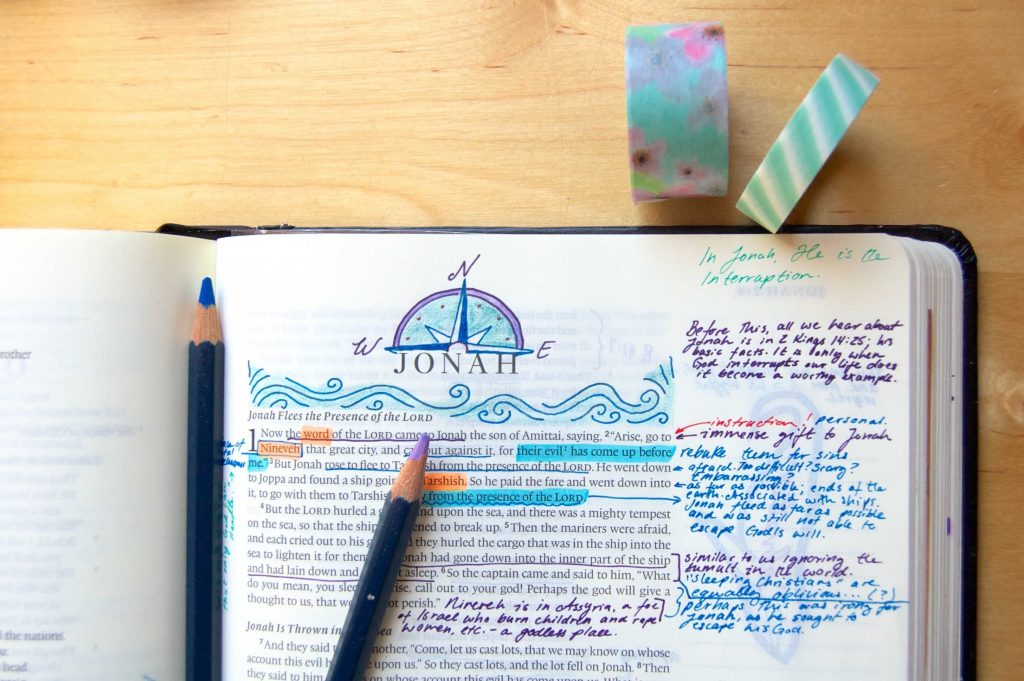 In Jonah, He is the
Interruption.
N
W
E
JONAH
Before This, all we hear about
Jonah is in 2 Kings 14:25; his
basic facts. It is only when
God interrupts our life does
it become a worthy example.
Jonah Flees the Presence of the LORD
1 Now the word of the LORD came to Jonah the son of Amittai, saying, 2 “Arise, go to
Nineveh, that great city, and call out against it, for their evil has come up before
me.” 3 But Jonah rose to flee to Tarshish from the presence of the LORD. He went down
to Joppa and found a ship going Tarshish. So he paid the fare and went down into
it, to go with them to Tarshish, from the presence of the LORD.
4 But the LORD hurled a upon the sea, and there was a mighty tempest
on the sea, so that the ship to break up. 5 Then the mariners were afraid,
and each cried out to his they hurled the cargo that was in the ship into the
sea to lighten it for them. Jonah had gone down into the inner part of the ship
and had lain down and asleep. 6 So the captain came and said to him, “What
do you mean, you call out to your god! Perhaps the god will give a
thought to us, that we not perish.”
instruction! personal.
immense gift to Jonah
rebuke them for sins
afraid. Too difficult? Scary?
Embarrassing?
as far as possible; ends of the
earth. Associated with ships.
Jonah fled as far as possible
and was still not able to
escape God's will.
similar to us ignoring the
tumult in the world.
"sleeping Christians" are
equally oblivious...(?)
perhaps this was irony for
Jonah, as he sought to
escape his God.
Nineveh is in Assyria, a foe
of Israel who burn children and rape
women, etc. - a godless place.
Jonah Is Thrown in Sea
7 And they said another, “Come, let us cast lots, that we may know on whose
account this evil upon us.” So they cast lots, and the lot fell on Jonah. 8 Then
they said to him on whose account this evil has come upon us. What is
brother
the nations.
head.